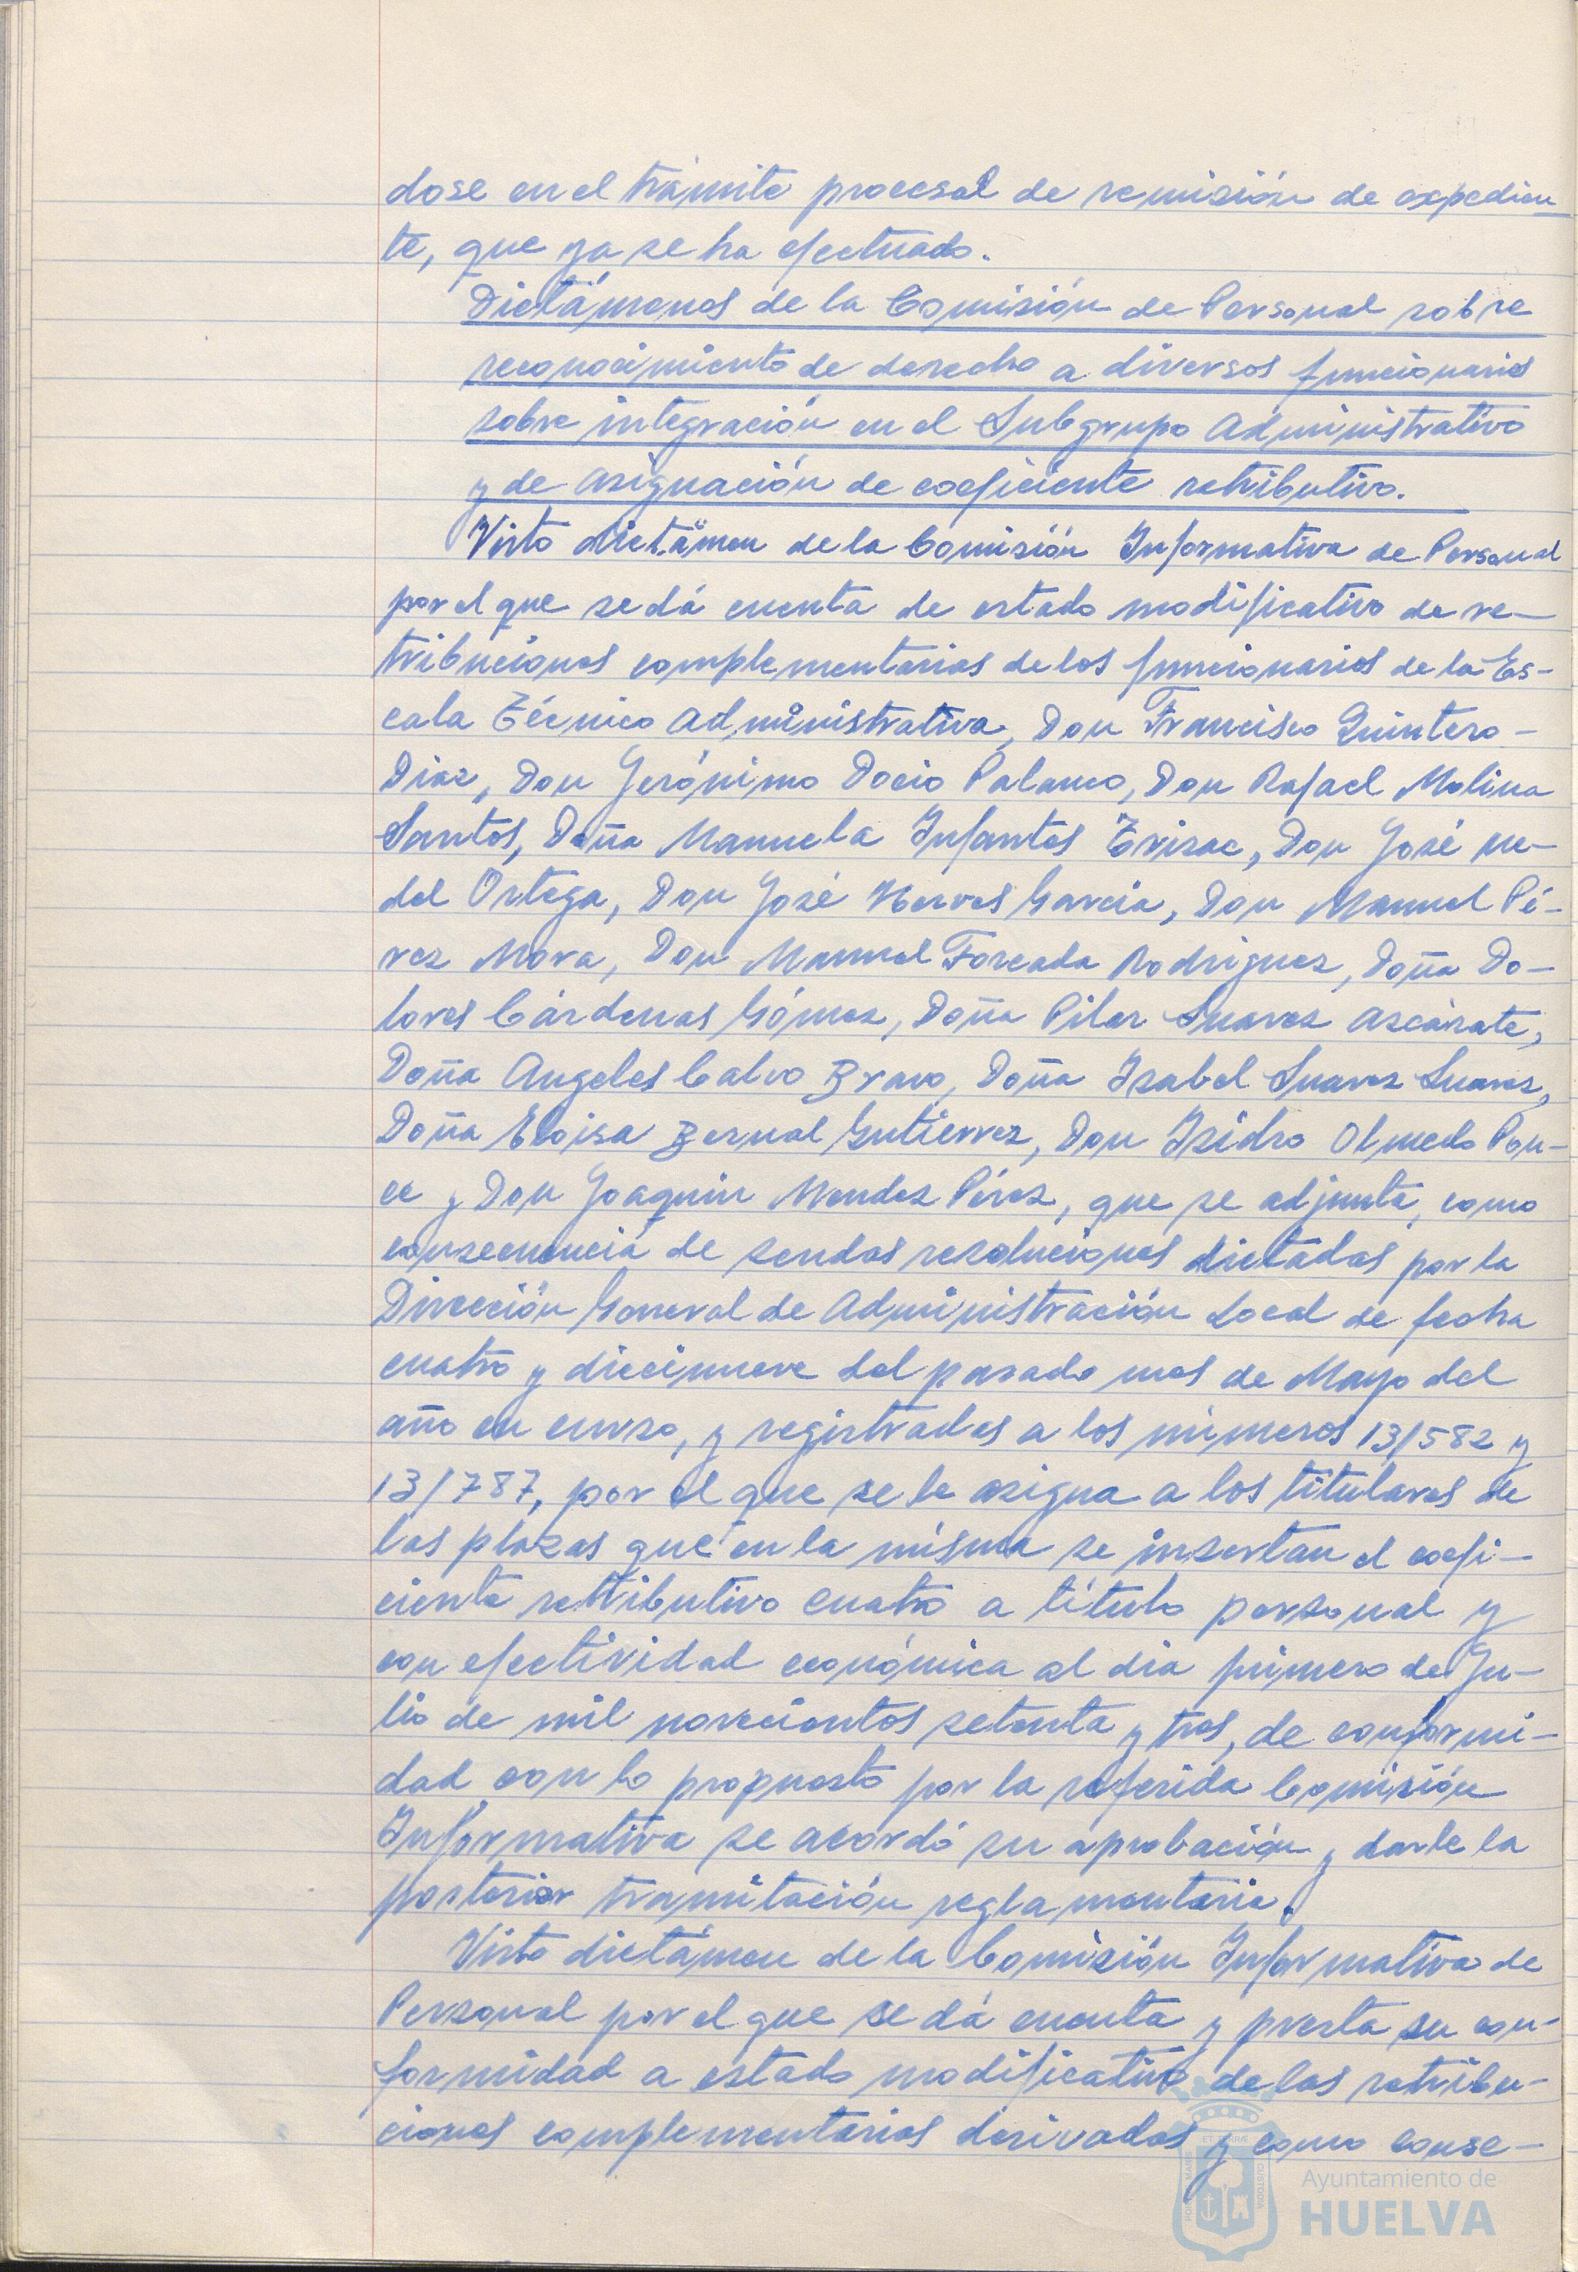 dose en el trámite procesal de remisión de expedien-
te, que ya se ha efectuado.
Dictámenes de la Comisión de Personal sobre
reconocimiento de derecho a diversos funcionarios
sobre integración en el Subgrupo Administrativo
y de asignación de coeficiente retributivo.
Visto dictámen de la Comisión Informativa de Personal
por el que se dá cuenta de estado modificativo de re-
tribuciones complementarias de los funcionarios de la Es-
cala Técnico Administrativa, Don Francisco Quintero-
Diaz, Don Gerónimo Docio Palanco, Don Rafael Molina
Santos, Doña Manuela Infantes, Don José
del Ortega, Don José Herves Garcia, Don Manuel Pé-
rez Mora, Don Manuel Forcada Rodriguez, Doña Do-
lores Cárdenas Gómez, Doña Pilar Suarez Azcárate,
Doña Angeles Calvo Bravo, Doña Isabel Suarez Suarez,
Doña Eloisa Bernal Gutierrez, Don Isidro Olmedo Pon-
ce y Don Joaquin Mendez Pérez, que se adjunta, como
consecuencia de sendas resoluciones dictadas por la
Dirección General de Administración Local de fecha
cuatro y diecinueve del pasado mes de Mayo del
año en curso, y registradas a los números 13/582 y
13/787, por el que se le asigna a los titulares de
las plazas que en la misma se insertan el coefi-
ciente retributivo cuatro a título personal y
con efectividad económica al dia primero de Ju-
lio de mil novecientos setenta y tres, de conformi-
dad con lo propuesto por la referida Comisión
Informativa se acordó su aprobación y darle la
posterior tramitación reglamentaria.
Visto dictámen de la Comisión Informativa de
Personal por el que se dá cuenta y presta su con-
formidad a estado modificativo de las retribu-
ciones complementarias derivadas y como conse-
Ayuntamiento de
HUELVA